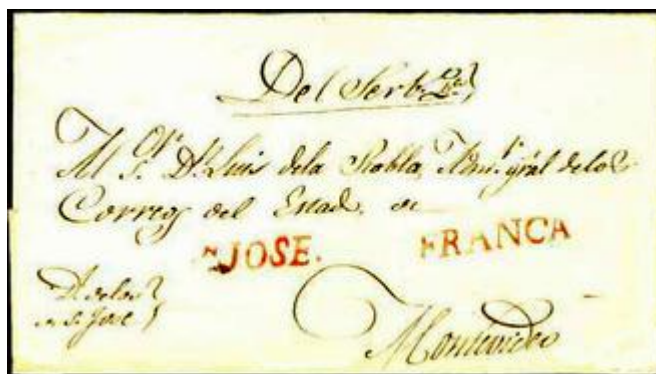 Del Serb.º
Al Sr. Dn. Luis dela Robla, Admr. gral de los
Correos del Estado de
S. JOSE. FRANCA
de S. José
Montevideo